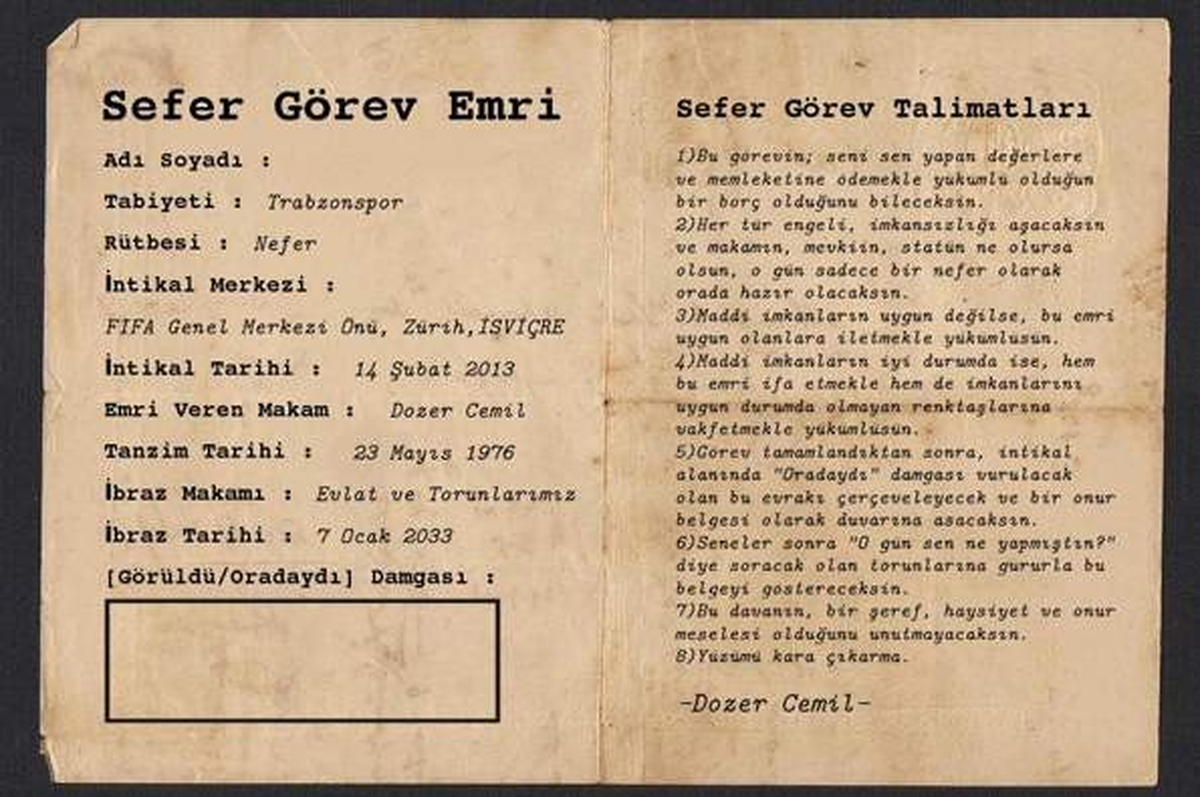 Sefer Görev Emri
Adı Soyadı :
Tabiyeti : Trabzonspor
Rütbesi : Nefer
İntikal Merkezi :
FIFA Genel Merkezi Önü, Zürih,İSVİÇRE
İntikal Tarihi : 14 Şubat 2013
Emri Veren Makam : Dozer Cemil
Tanzim Tarihi : 23 Mayıs 1976
İbraz Makamı : Evlat ve Torunlarımız
İbraz Tarihi : 7 Ocak 2033
[Görüldü/Oradaydı] Damgası :
Sefer Görev Talimatları
1)Bu görevin; seni sen yapan değerlere
ve memleketine ödemekle yükümlü olduğun
bir borç olduğunu bileceksin.
2)Her tür engeli, imkansızlığı aşacaksın
ve makamın, mevkiin, statün ne olursa
olsun, o gün sadece bir nefer olarak
orada hazır olacaksın.
3)Maddi imkanların uygun değilse, bu emri
uygun olanlara iletmekle yükümlüsün.
4)Maddi imkanların iyi durumda ise, hem
bu emri ifa etmekle hem de imkanlarını
uygun durumda olmayan renktaşlarına
vakfetmekle yükümlüsün.
5)Görev tamamlandıktan sonra, intikal
alanında "Oradaydı" damgası vurulacak
olan bu evrakı çerçeveleyecek ve bir onur
belgesi olarak duvarına asacaksın.
6)Seneler sonra "O gün sen ne yapmıştın?"
diye soracak olan torunlarına gururla bu
belgeyi göstereceksin.
7)Bu davanın, bir şeref, haysiyet ve onur
meselesi olduğunu unutmayacaksın.
8)Yüzümü kara çıkarma.
-Dozer Cemil-